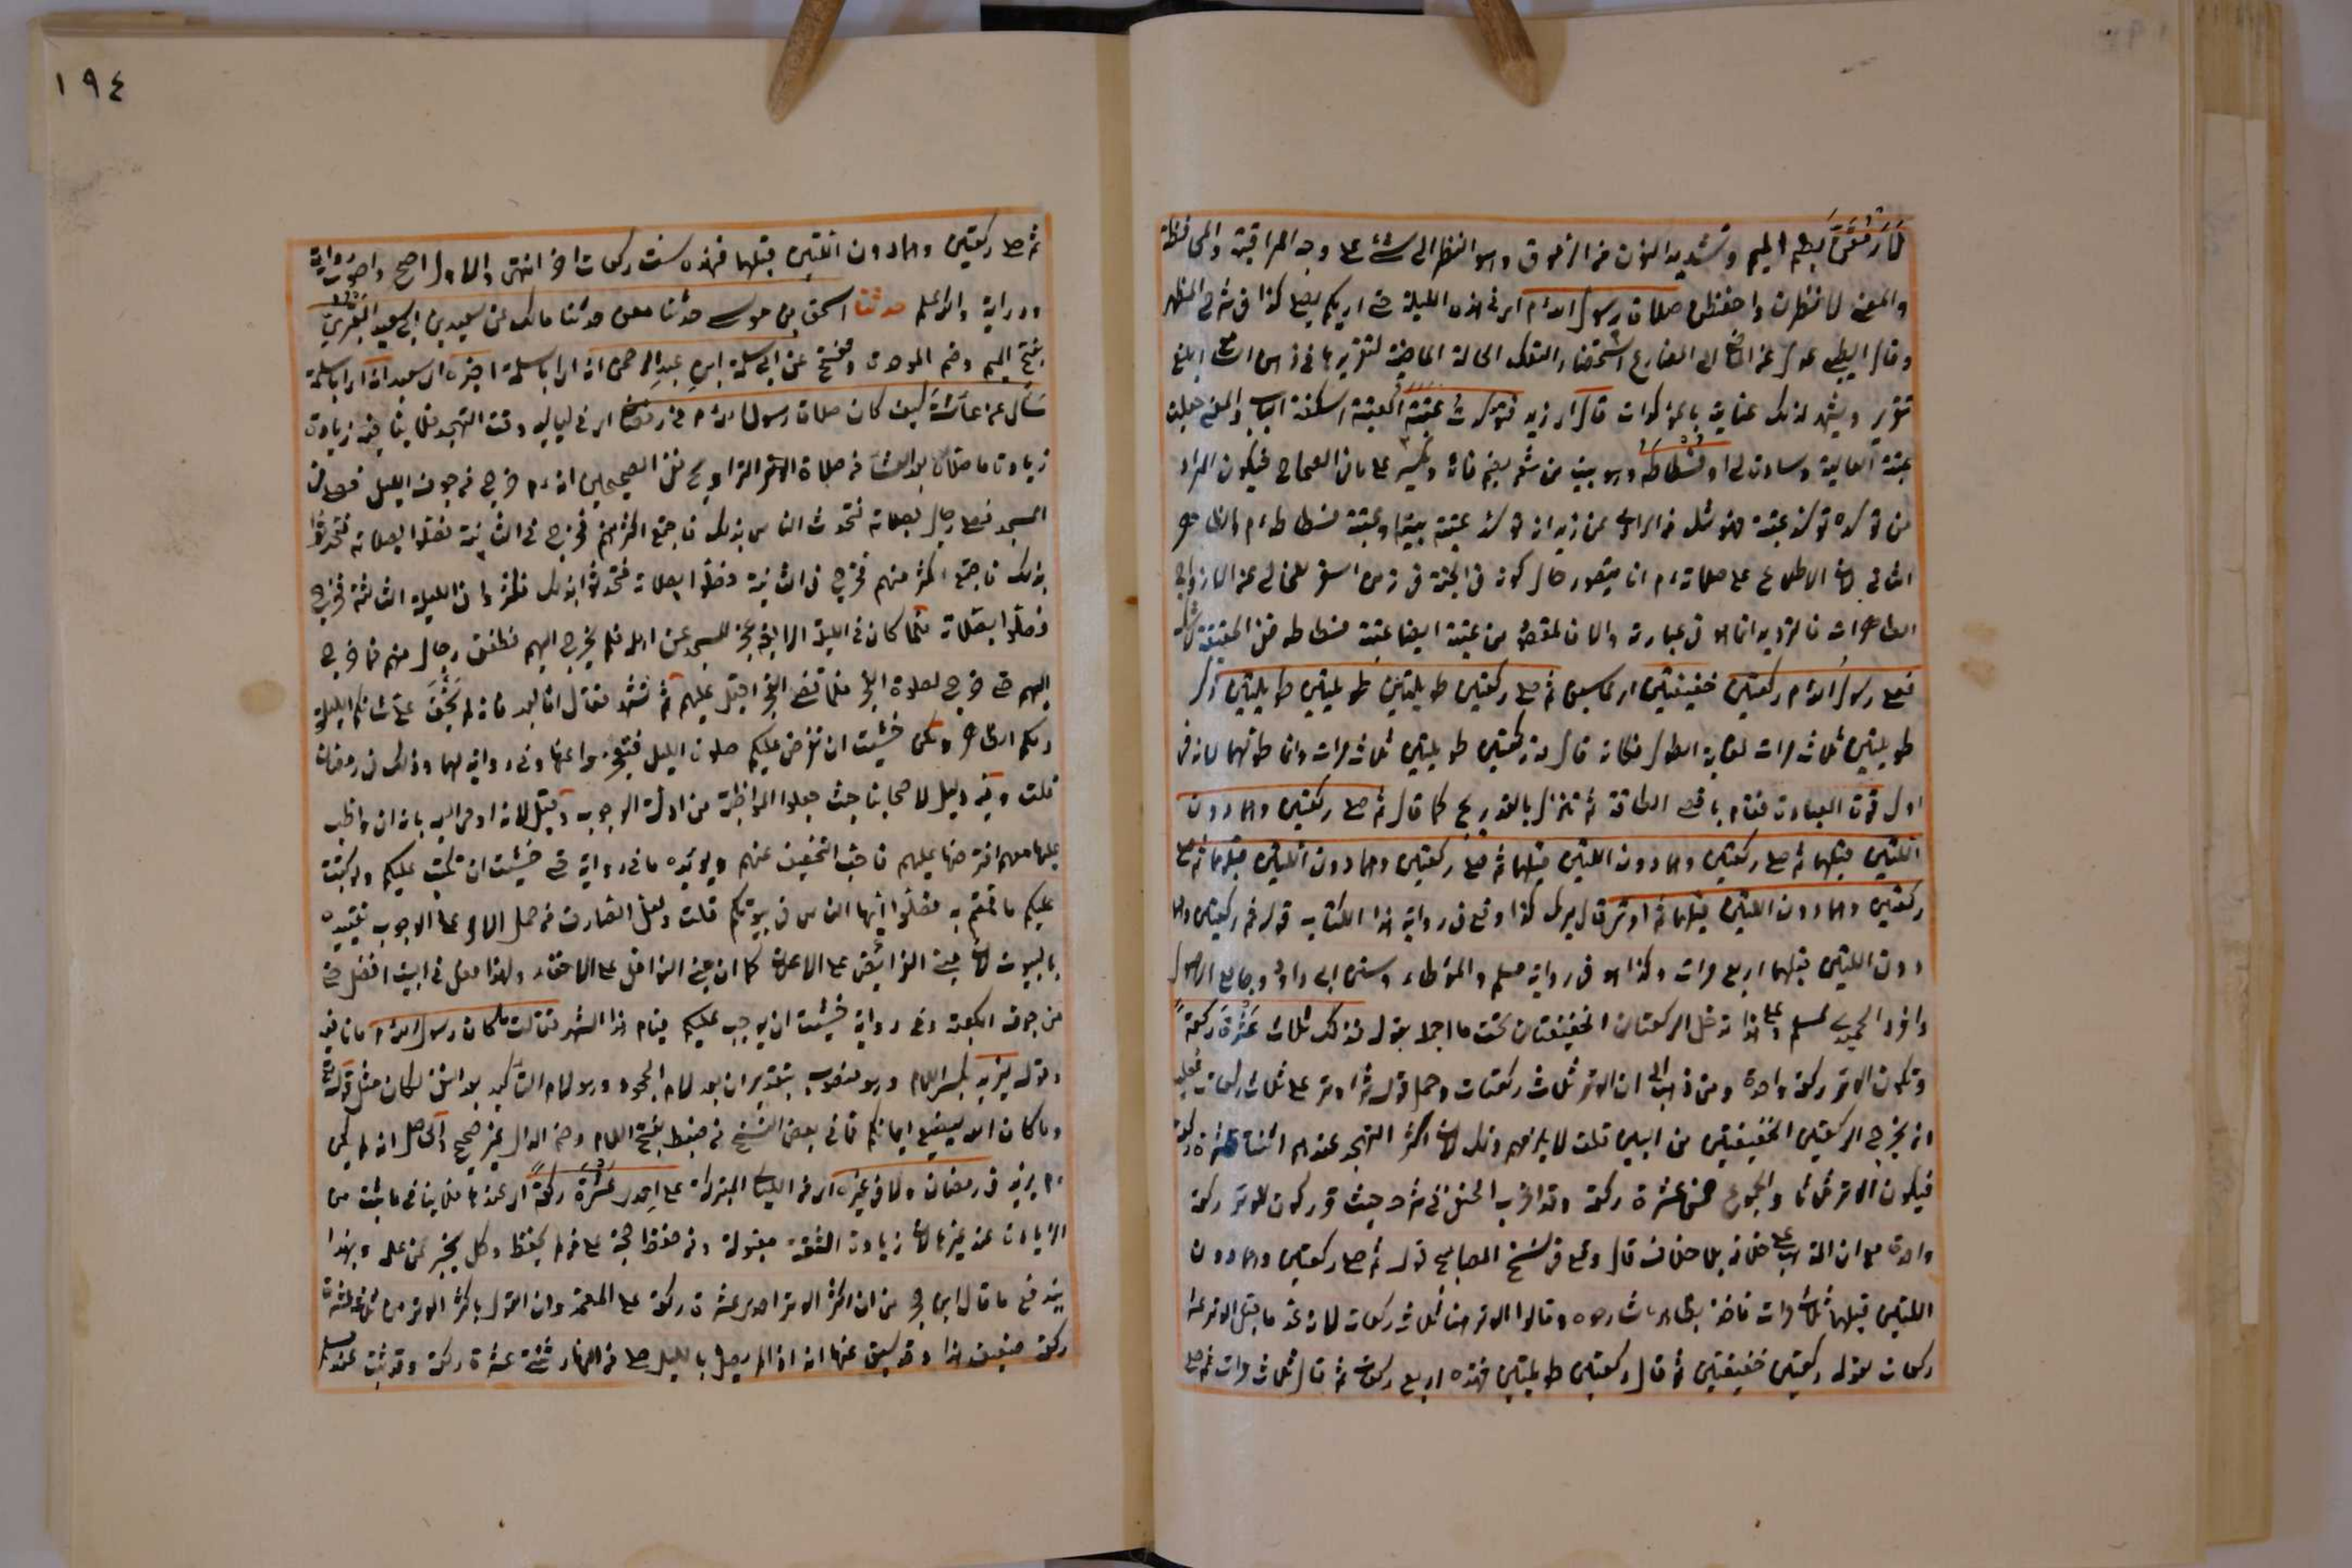 لأرمقن بضم الميم وتشديد النون من الرموق وهو النظر الى شيء على وجه المراقبة والمحافظة
والمعنى لانظرن واحفظن صلاة رسول الله م اي في هذه الليلة حتى اري كم يصلي كذا في شرح المظهر
وقال الطيبي عدل عن الماضي الى المضارع استحضارا لتلك الحالة الماضية لتقريرها في ذهن السامع ابلغ
تقرير ويشهد لذلك عنايته بالمذكورات قال اي زيد فتوسدت عتبته العتبة اسكفة الباب والمعنى جعلت
عتبته العالية وسادة لي او فسطاطه وهو بيت من شعر بضم فائه وبكسر على ما في الصحاح فيكون المراد
من توسده توسد عتبته فهو شك من الراوي عن زيد انه توسد عتبة بيته او عتبة فسطاطه م والظاهر
الثاني لان الاطلاع على صلاته م انما يتصور حال كونه في الخيمة في زمن السفر الخالي عن الازواج
الطاهرات فالترديد انما هو في عبارته والا فالمقصود من عتبته ايضا عتبة فسطاطه ففي الحقيقة لا شك
فصلى رسول الله م ركعتين خفيفتين ثم صلى ركعتين طويلتين طويلتين طويلتين ذكر
طويلتين ثلاث مرات لغاية الطول فكانه قال ركعتين طويلتين ثلاث مرات وانما طولهما لانه في
اول قوة العبادة فقام باقصى الطاقة ثم تنزل بالتدريج كما قال ثم صلى ركعتين وهما دون
اللتين قبلهما ثم صلى ركعتين وهما دون اللتين قبلهما ثم صلى ركعتين وهما دون اللتين قبلهما ثم صلى
ركعتين وهما دون اللتين قبلهما ثم اوتر قال ميرك كذا وقع في رواية هذا الكتاب قوله ثم ركعتين وهما
دون اللتين قبلهما اربع مرات وكذا هو في رواية مسلم والموطاء وسنن ابي داود وجامع الاصول
وافراد الحميدي لمسلم وعلى هذا تدخل الركعتان الخفيفتان تحت ما اجمل بقوله فذلك ثلاث عشرة ركعة
وتكون الوتر ركعة واحدة ومن ذهب الى ان الوتر ثلاث ركعات وحمل قوله ثم اوتر على ثلاث ركعات فعليه
ان يخرج الركعتين الخفيفتين من البين قلت لا يلزمهم ذلك لان اكثر التهجد عندهم اثنتا عشرة ركعة
فيكون الوتر ثلاثا والمجموع خمس عشرة ركعة وقد اغرب الحنفي في شرحه حيث قرر كون الوتر ركعة
واحدة مع ان المذهب على خلافه بلا خلاف قال وقع في نسخ المصابيح قوله ثم صلى ركعتين وهما دون
اللتين قبلهما ثلاث مرات فاخذ بظاهره شارحوه وقالوا الوتر هنا ثلاث ركعات لانه عد ما قبل الوتر عشر
ركعات لقوله ركعتين خفيفتين ثم قال ركعتين طويلتين فهذه اربع ركعات ثم قال ثلاث مرات ثم صلى
١٩٤
ثم صلى ركعتين وهما دون اللتين قبلهما فهذه ست ركعات اخر انتهى والاول اصح واصوب رواية
ودراية والله اعلم حدثنا اسحق بن موسى حدثنا معن حدثنا مالك عن سعيد بن ابي سعيد المقبري
بفتح الميم وضم الموحدة وتفتح عن ابي سلمة ابن عبد الرحمن انه اي ابا سلمة اخبره اي سعيد انه اي ابا سلمة
سأل عن عائشة كيف كان صلاة رسول الله م في رمضان اي في لياليه وقت التهجد فلا ينافيه زيادة
زيادة ما صلاه بعد العشاء من صلاة التراويح ففي الصحيحين انه م خرج من جوف الليل فصلى في
المسجد فصلى رجال بصلاته فتحدث الناس بذلك فاجتمع اكثر منهم فخرج في الثانية فصلوا بصلاته فتحدثوا
بذلك فاجتمع اكثر منهم فخرج في الثانية فصلوا بصلاته فتحدثوا بذلك فكثروا في الليلة الثالثة فخرج
فصلوا بصلاته فلما كان في الليلة الرابعة عجز المسجد عن اهله فلم يخرج اليهم فطفق رجال منهم فما خرج
اليهم حتى خرج لصلوة الفجر فلما قضى الفجر اقبل عليهم ثم تشهد فقال اما بعد فانه لم يخف علي شأنكم الليلة
ولكني خشيت ان تفرض عليكم صلوة الليل فتعجزوا عنها وفي رواية لهما وذلك في رمضان
قلت وفيه دليل لاصحابنا حيث جعلوا المواظبة من ادلة الوجوب وقيل لانه اوحي اليه بانه ان واظب
عليها معهم افترضها عليهم فاحب التخفيف عنهم ويؤيده ما في رواية حتى خشيت ان تكتب عليكم ولو كتبت
عليكم ما قمتم به فصلوا ايها الناس في بيوتكم قلت ولعل الصارف من حمل الامر على الوجوب تقييده
بالبيوت لان مبنى الفرائض على الاعلان كما ان مبنى النوافل على الاخفاء ولهذا فعل في البيت افضل حتى
من جوف الكعبة وفي رواية خشيت ان يوجب عليكم قيام هذا الشهر فقالت ما كان رسول الله م ما نافية
وقوله ليزيد بكسر اللام وهو منصوب بتقدير ان بعد لام الجحود وهو لام التأكيد بعد النفي لكان مثل قوله تعالى
وما كان الله ليضيع ايمانكم فما في بعض النسخ من ضبط بفتح اللام وضم الدال غير صحيح والحاصل انه لم يكن
م يزيد في رمضان ولا في غيره اي من الليالي المتبركة على احدى عشرة ركعة اي عندها فلا ينافي ما ثبت من
الزيادات عند غيرها لان زيادة الثقة مقبولة ومن حفظ حجة على من لم يحفظ وكل يخبر عن علمه وبهذا
يندفع ما قال ابن حجر من ان اكثر الوتر احدى عشرة ركعة على المعتمد وان القول باكثر الوتر من ثلاث عشرة
ركعة ضعيف هذا وقد سبق عنها انه اذا لم يصل بالليل صلى من النهار ثنتي عشرة ركعة وقد ثبت عند مسلم